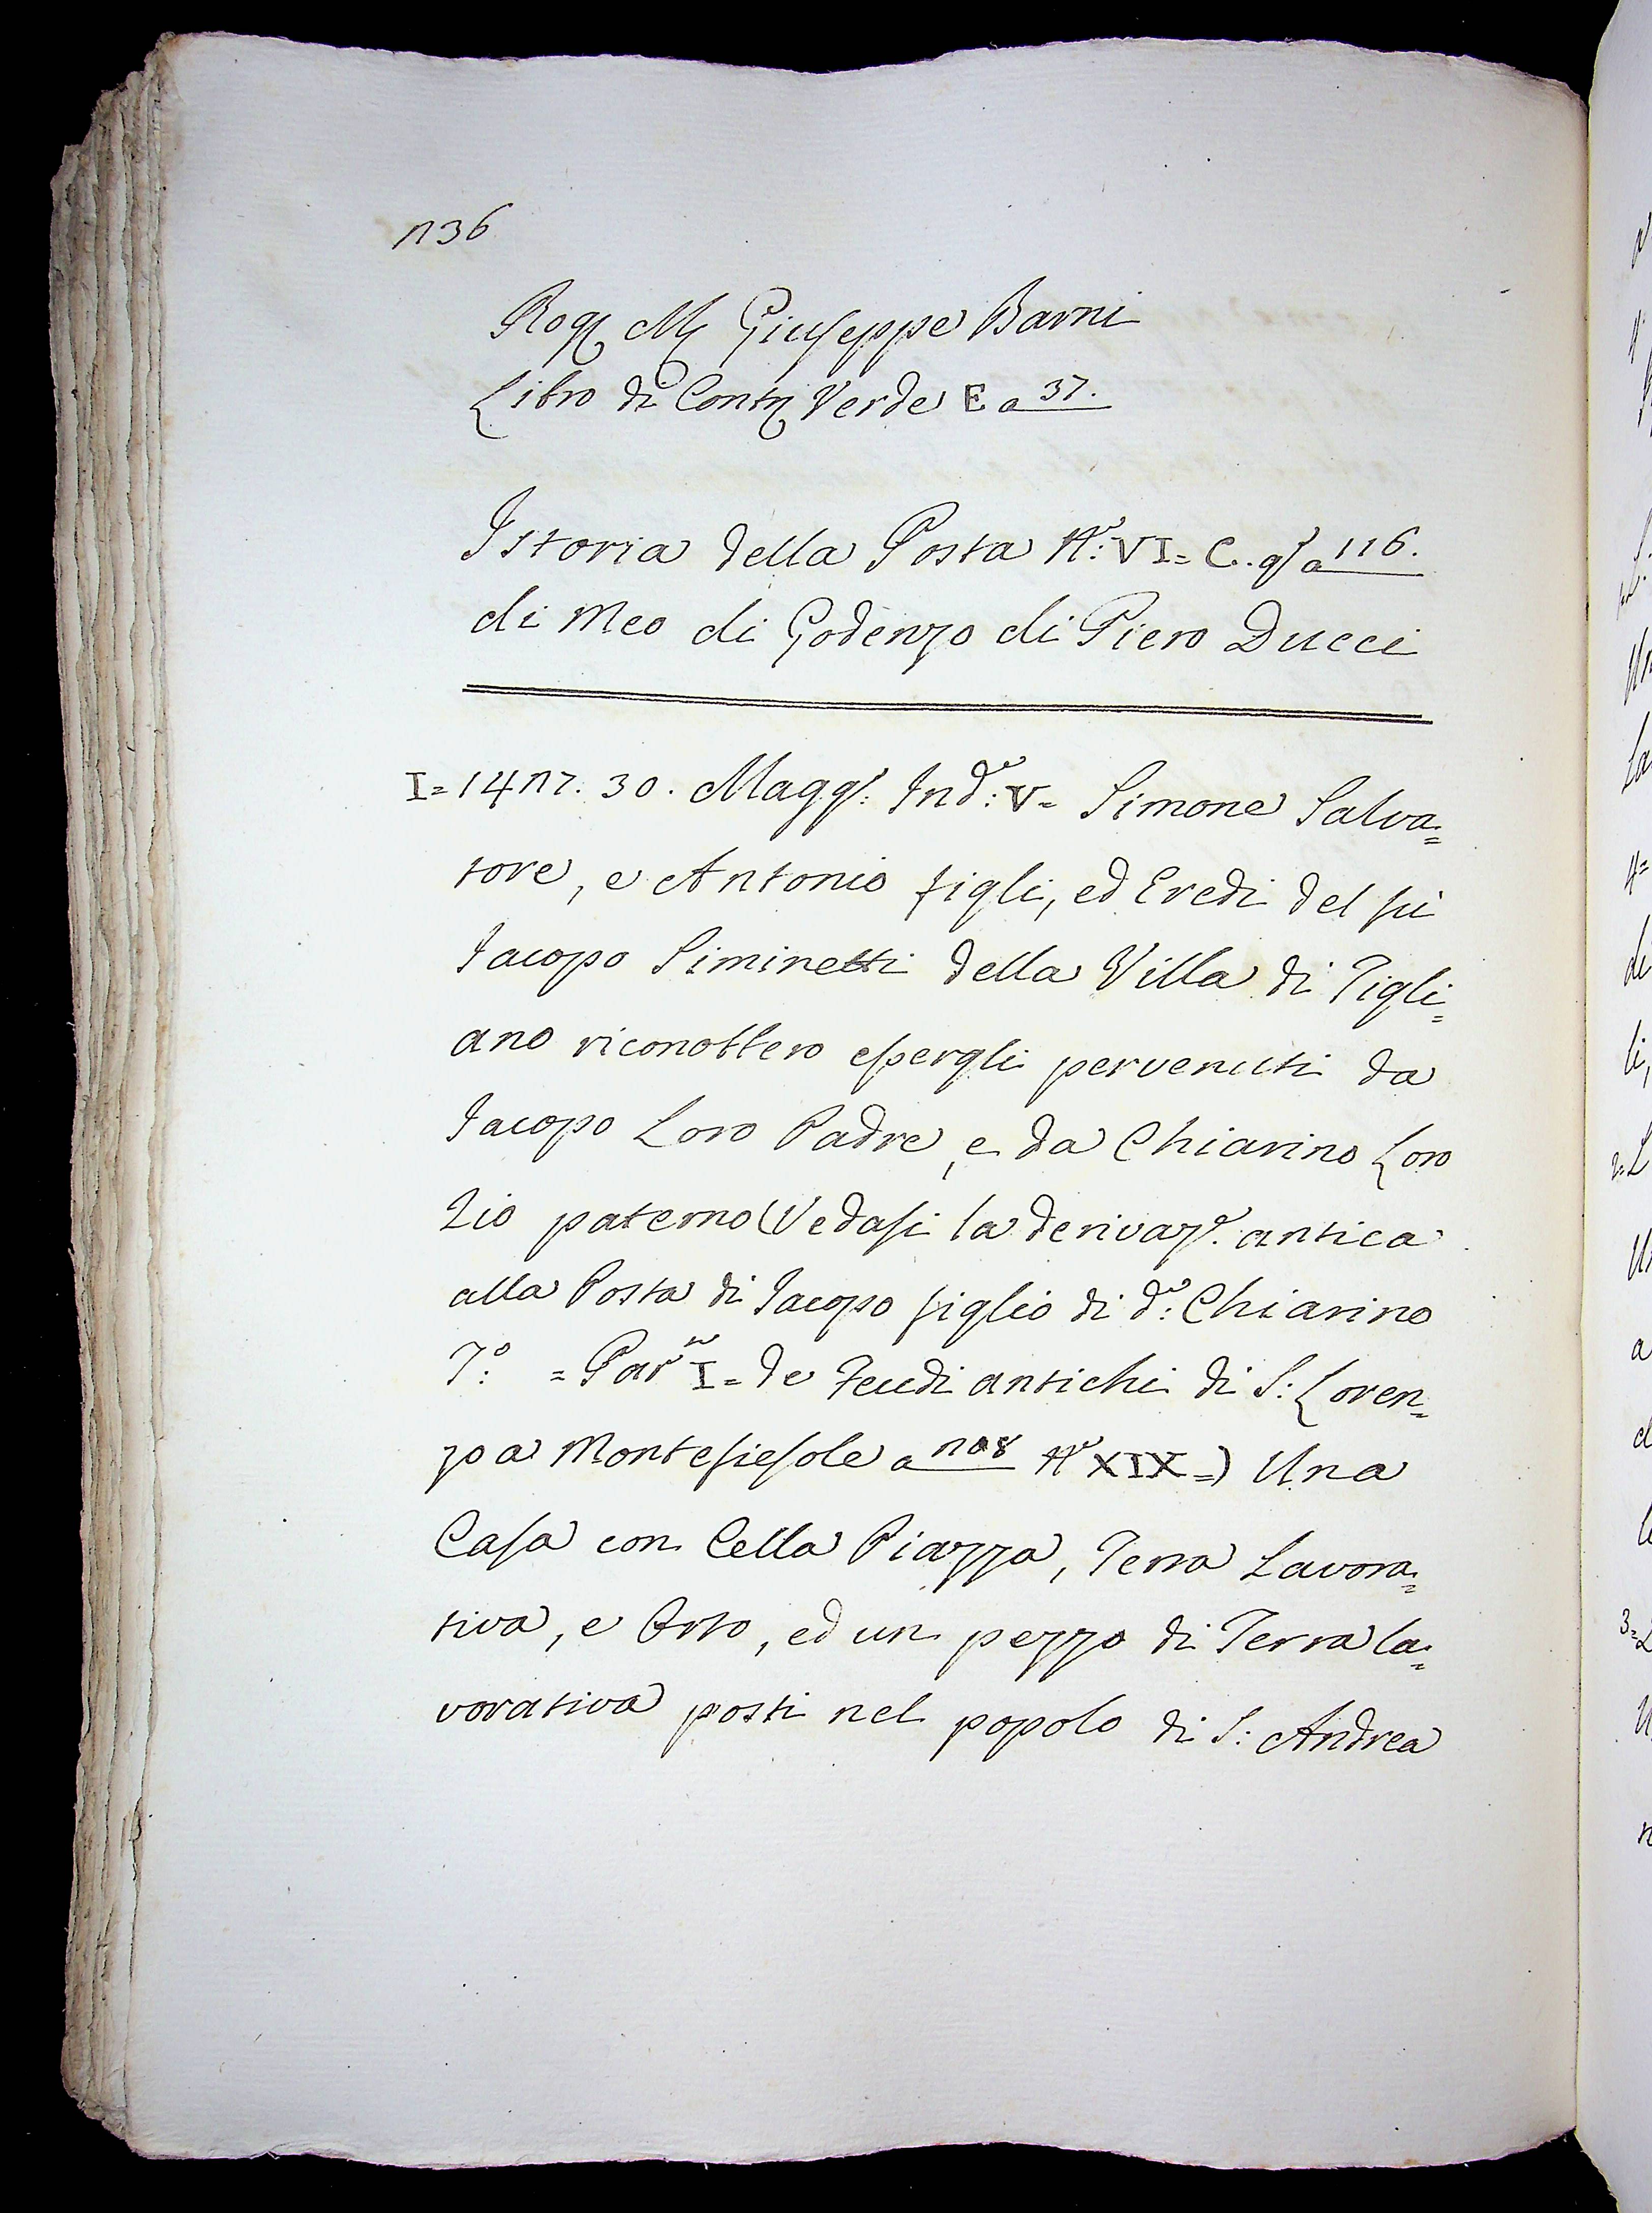 236
Rog. M. Giuseppe Barni
Libro di Contr. Verde E a 37.
Istoria della Posta N.º: VI= C. qs. a 116.
di Meo di Godenzo di Piero Ducci
I= 1427. 30. Magg.: Ind.e: V= Simone Salva=
tore, e Antonio figli, ed Eredi del fù
Jacopo Siminetti della Villa di Tigli=
ano riconobbero essergli pervenuti da
Jacopo Loro Padre, e da Chiarino Loro
Zio paterno (Vedasi la derivaz.e antica
alla Posta di Jacopo figlio di d.º: Chiarino
T.º: = Par.te I= de Feudi antichi di S: Loren=
zo a Montefiesole a 208 N.º XIX=) Una
Casa con Cella Piazza, Terra Lavora=
tiva, e Orto, ed un pezzo di Terra la=
vorativa posti nel popolo di S: Andrea